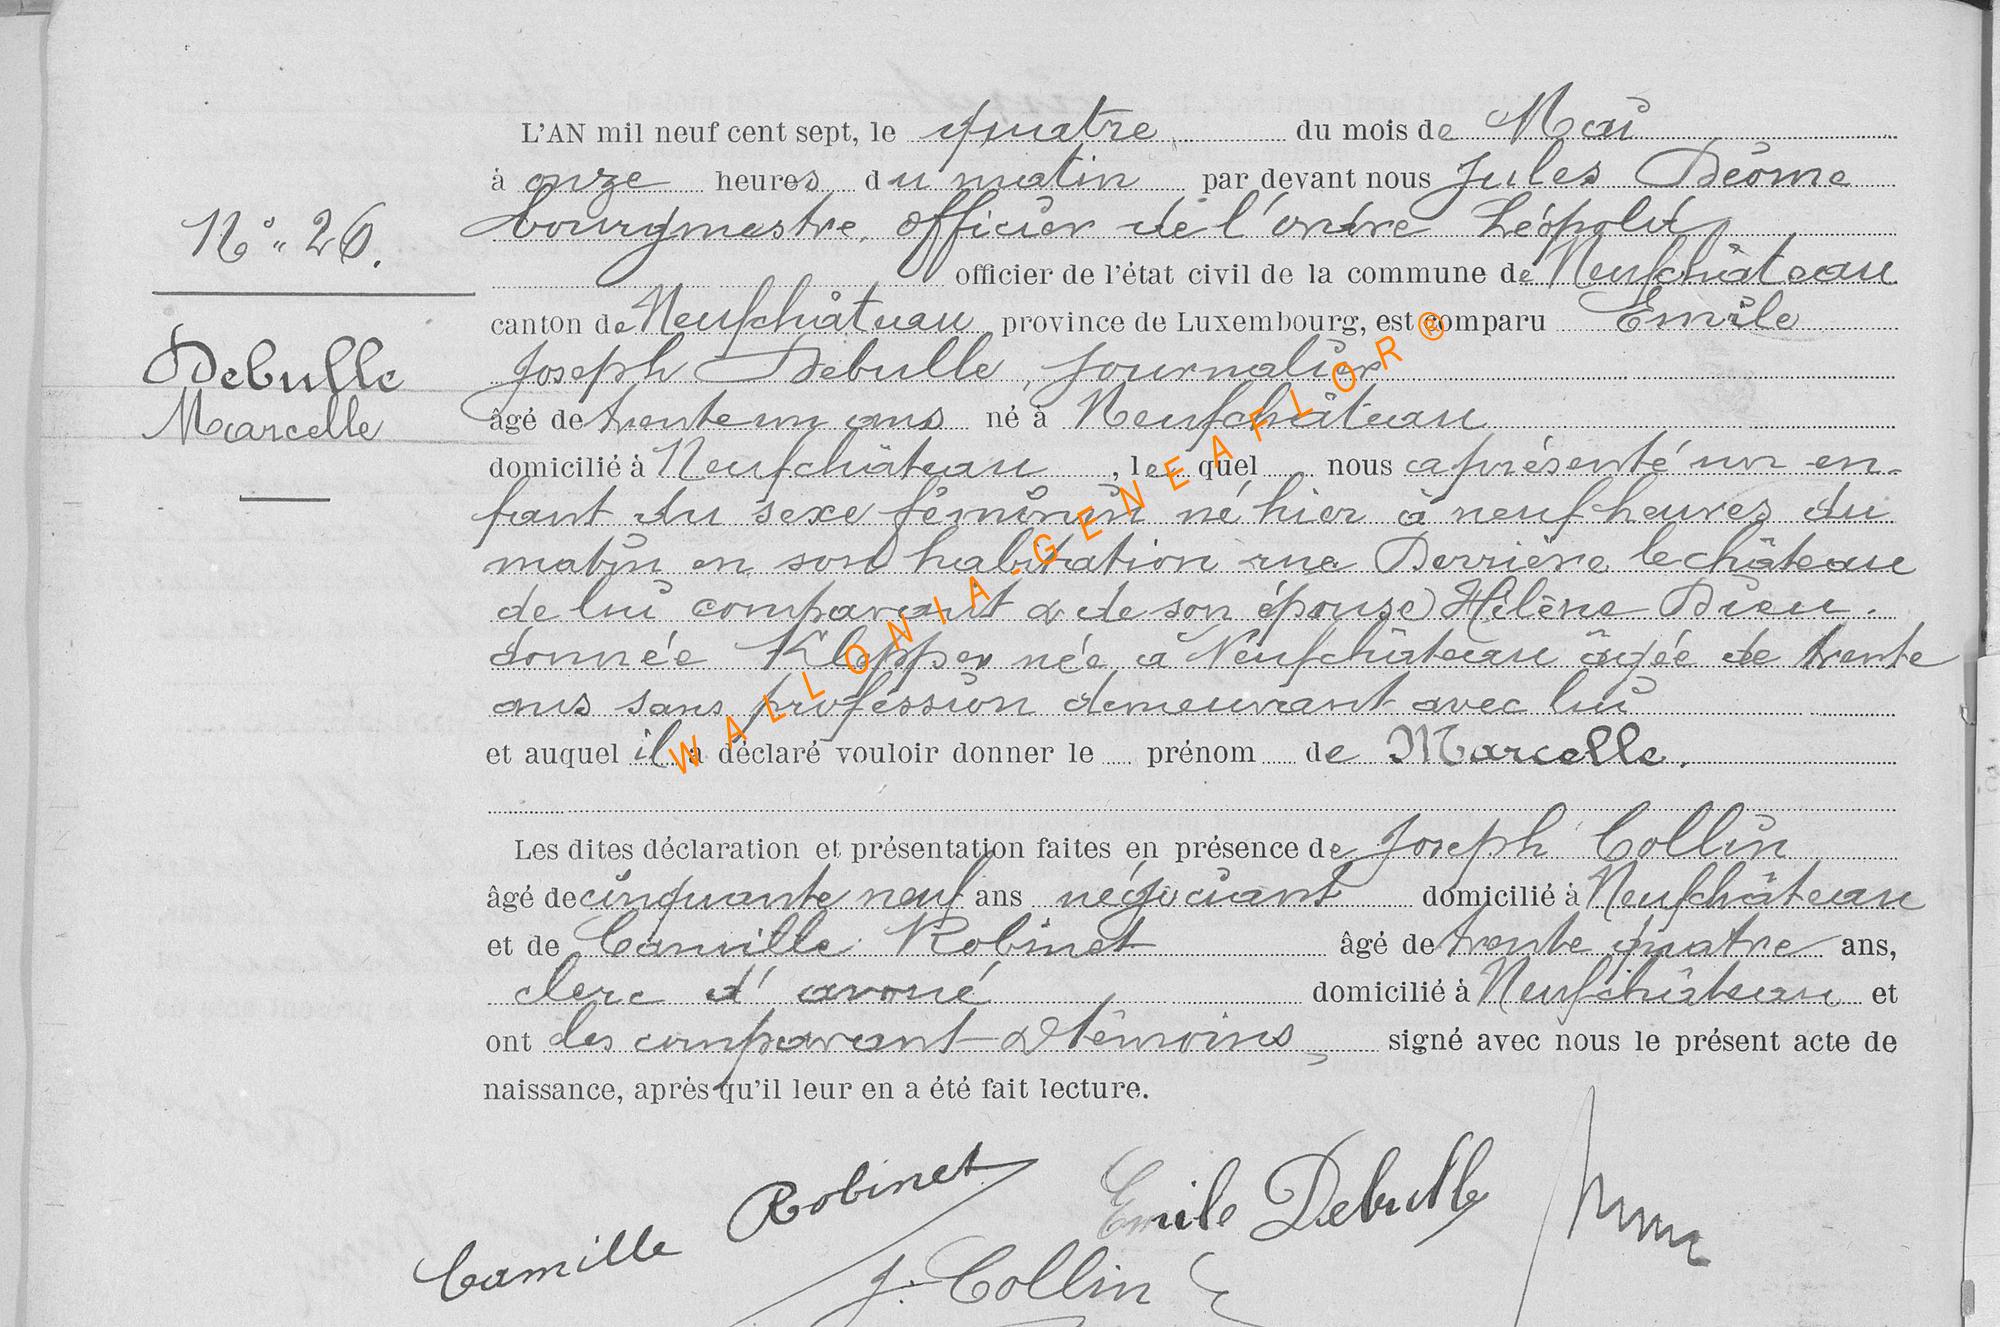 L'AN mil neuf cent sept, le quatre du mois de Mai
à onze heures du matin par devant nous Jules Déome
bourgmestre, officier de l'ordre Léopold,
officier de l'état civil de la commune de Neufchâteau
canton de Neufchâteau province de Luxembourg, est comparu Emile
Joseph Debulle, journalier
âgé de trente un ans né à Neufchâteau
domicilié à Neufchâteau, lequel nous a présenté un en-
fant du sexe féminin né hier à neuf heures du
matin en son habitation rue Derrière le château
de lui comparant & de son épouse Hélène Dieu-
donnée Klepper née à Neufchâteau âgée de trente
ans sans profession demeurant avec lui
et auquel il a déclaré vouloir donner le prénom de Marcelle.
Les dites déclaration et présentation faites en présence de Joseph Collin
âgé de cinquante neuf ans négociant domicilié à Neufchâteau
et de Camille Robinet âgé de trente quatre ans,
clerc d'avoué domicilié à Neufchâteau et
ont les comparant & témoins signé avec nous le présent acte de
naissance, après qu'il leur en a été fait lecture.
N° 26.
Debulle
Marcelle
Camille Robinet
Emile Debulle
J. Collin
WALLONIA-GENEAFLOR®